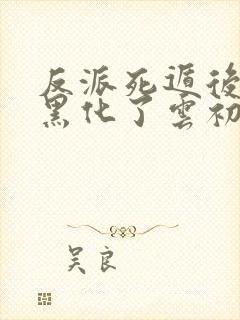 反派死遁後
黑化了雲初
吴良